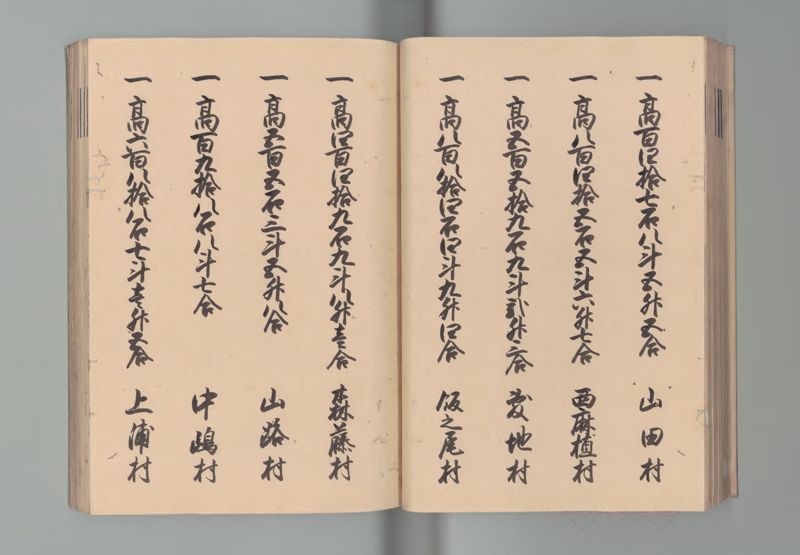 一高百四拾七石八斗五升五合　山田村
一高八百四拾五石五斗六升七合　西麻植村
一高五百五拾九石九斗弐升六合　敷地村
一高八百八拾四石四斗九升四合　飯之尾村
一高四百四拾九石九斗八升壱合　森藤村
一高五百五石三斗五升八合　山路村
一高百九拾八石八斗七合　中嶋村
一高六百八拾八石七斗壱升五合　上浦村